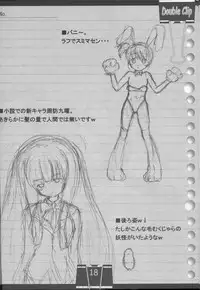 No.
Double Clip
■バニー。
ラフでスミマセン・・・
■小説での新キャラ周防九曜。
あきらかに髪の量で人間では無いですw
■後ろ姿w↓
たしかこんな毛むくじゃらの
妖怪がいたようなw
18